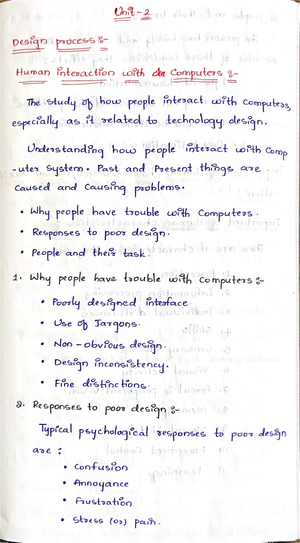 Unit-2
Design process :-
Human interaction with the Computers :-
The study of how people interact with computers,
especially as it related to technology design.
Understanding how people interact with Comp
-uter system. Past and Present things are
Caused and Causing problems.
• Why people have trouble with Computers.
• Responses to poor design.
• People and their task.
1. Why people have trouble with computers :-
• Poorly designed interface
• Use of Jargons.
• Non-obvious design.
• Design inconsistency.
• Fine distinctions.
2. Responses to poor design :-
Typical psychological responses to poor design
are :
• Confusion
• Annoyance
• Frustration
• Stress (or) pain.